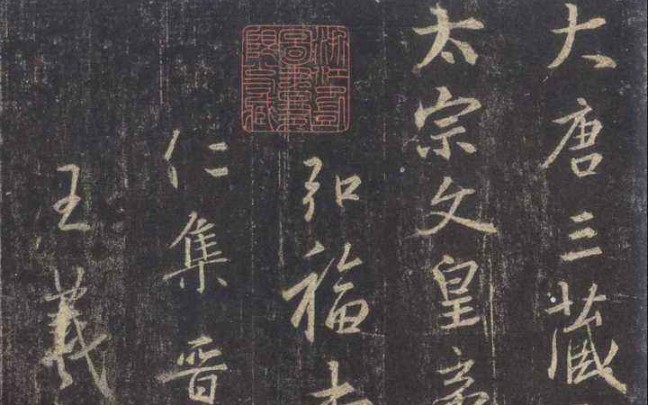 大唐三藏
太宗文皇帝
弘福寺
仁集晋
王羲